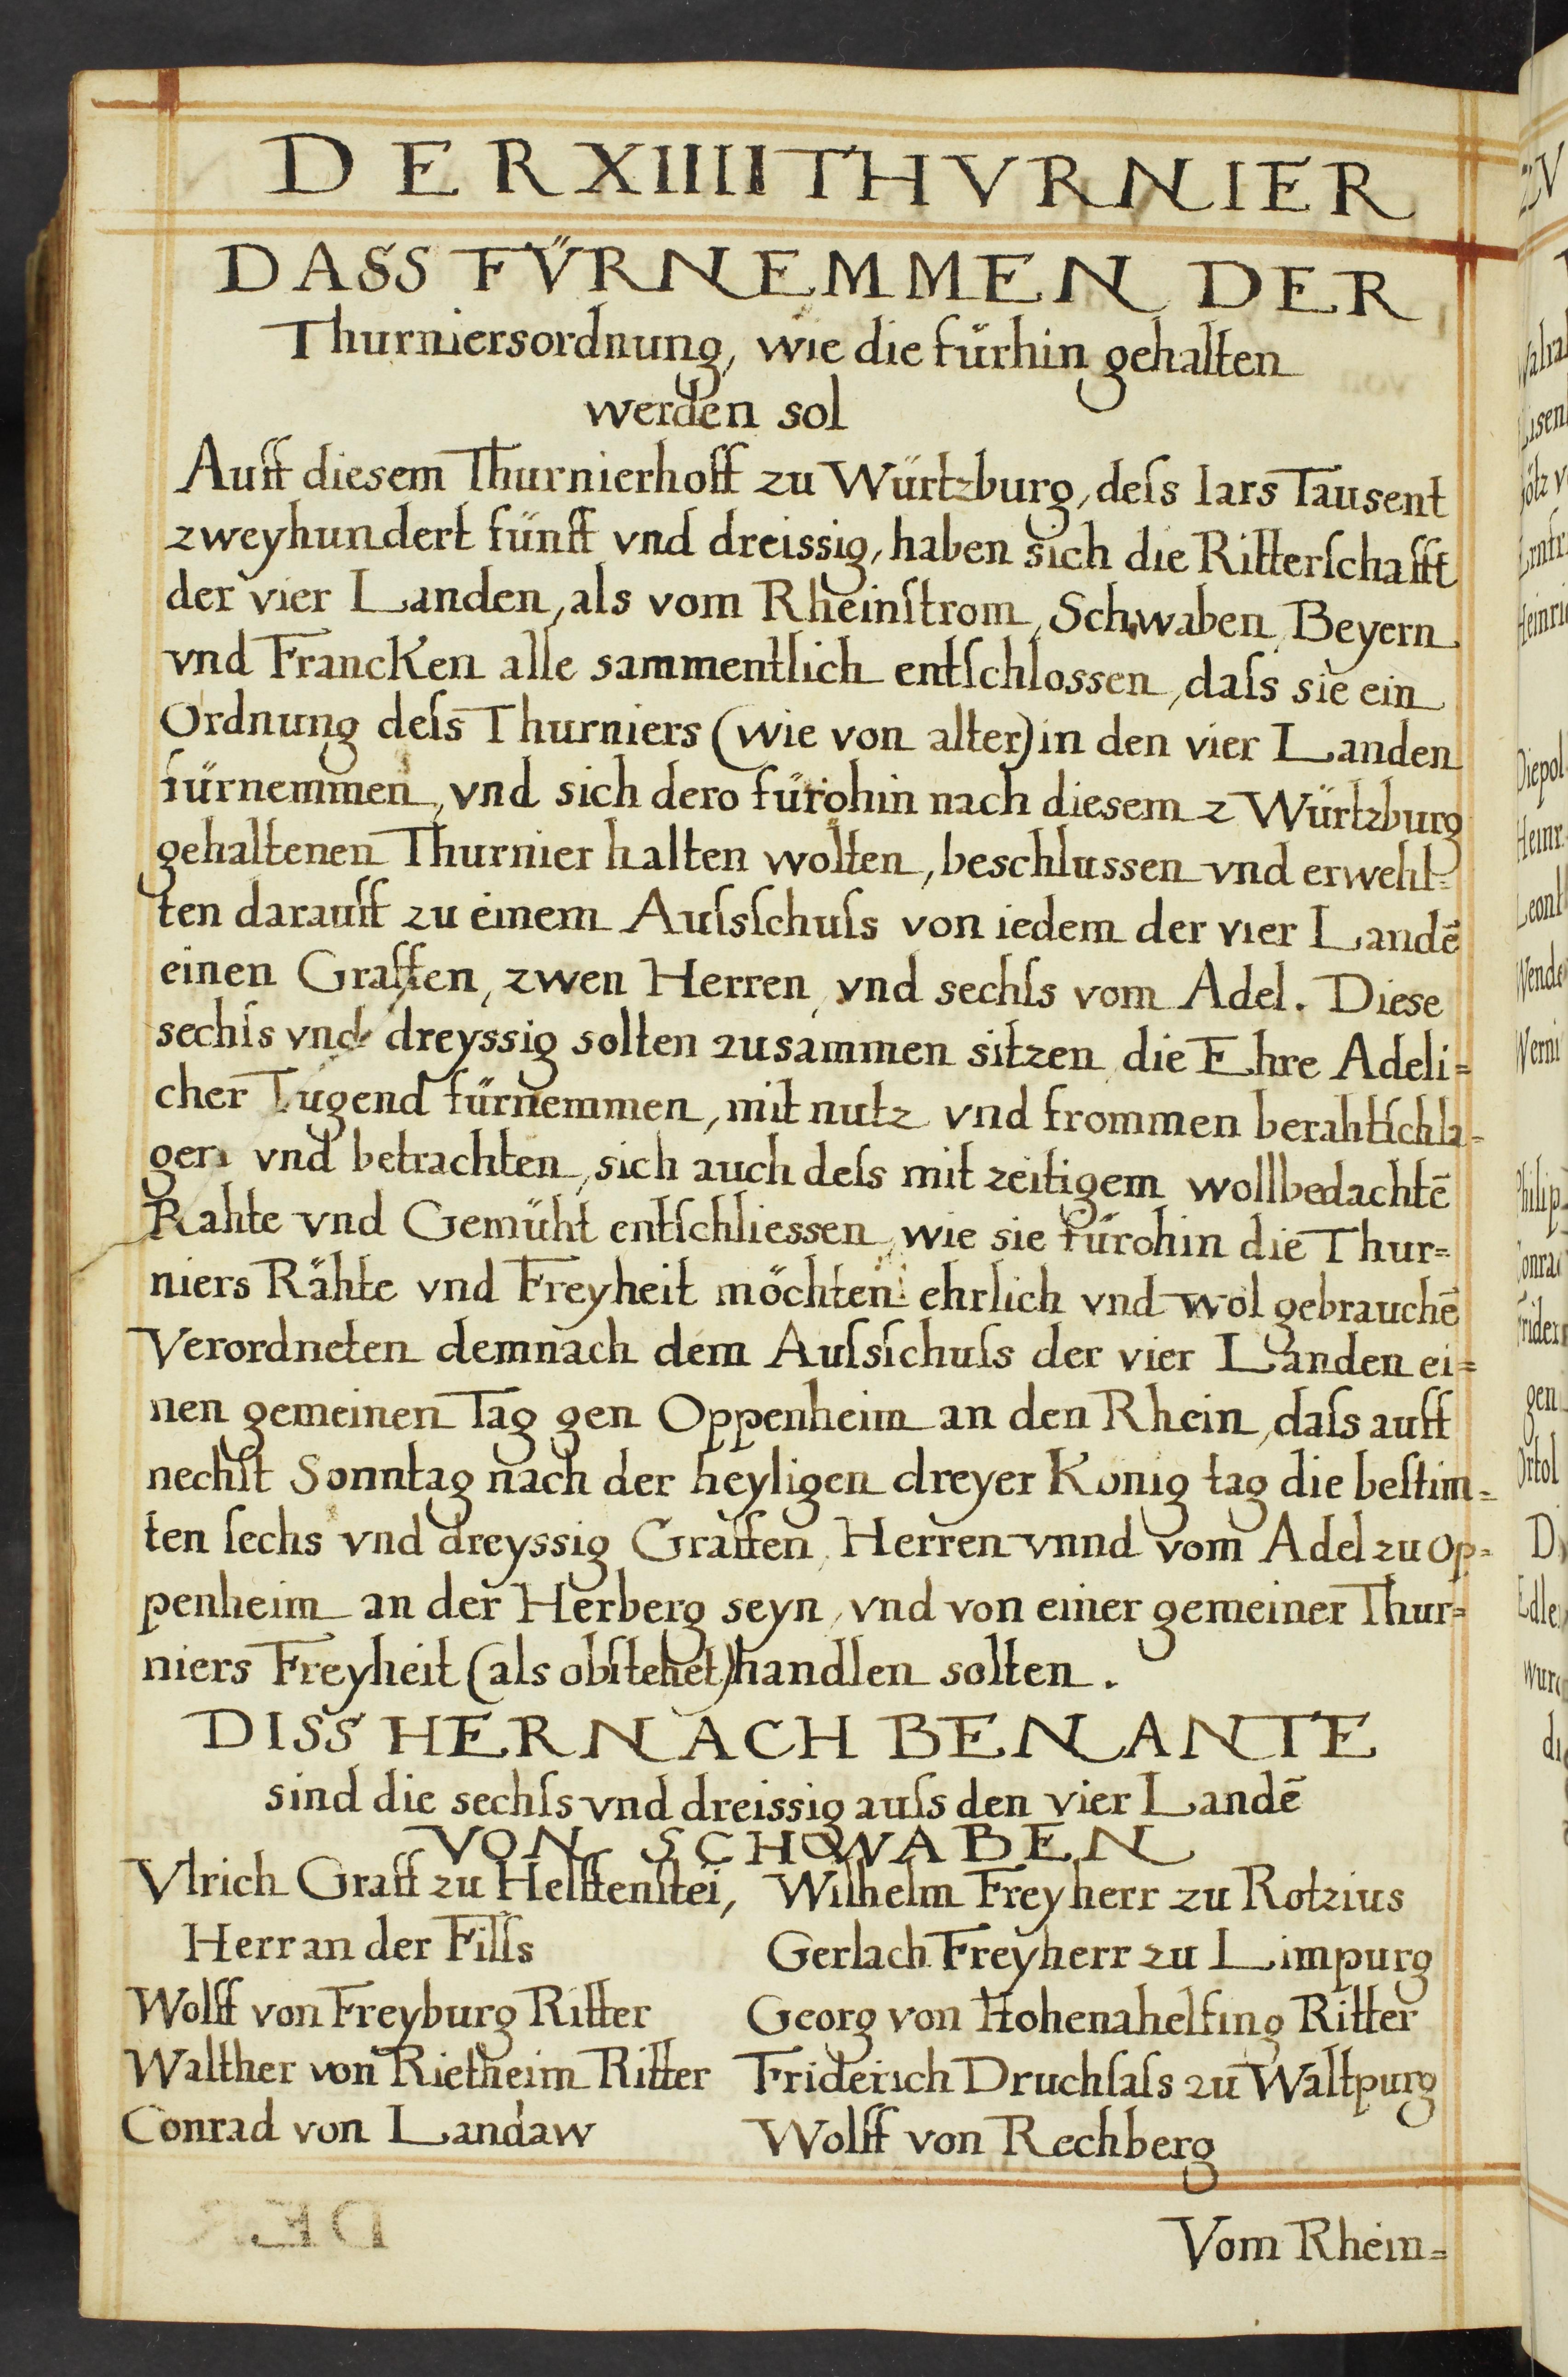 DER XIIII THVRNIER
DASS FV̈RNEMMEN DER
Thurniersordnung, wie die fürhin gehalten
werden sol
Auff diesem Thurnierhoff zu Würtzburg, deſs Iars Tausent
zweyhundert fünff vnd dreissig, haben sich die Ritterſchafft
der vier Landen, als vom Rheinſtrom, Schwaben, Beyern
vnd Francken alle sammentlich entſchlossen, daſs sie ein
Ordnung deſs Thurniers (wie von alter) in den vier Landen
fürnemmen, vnd sich dero fürohin nach diesem z Würtzburg
gehaltenen Thurnier halten wolten, beschlussen vnd erwehl=
ten darauff zu einem Auſsſchuſs von iedem der vier Landē
einen Graffen, zwen Herren, vnd sechſs vom Adel. Diese
sechſs vnd dreyssig solten zusammen sitzen, die Ehre Adeli=
cher Tugend fürnemmen, mit nutz vnd frommen berahtſchla=
gen vnd betrachten, sich auch deſs mit zeitigem wollbedachtē
Rahte vnd Gemüht entſchliessen, wie sie fürohin die Thur=
niers Rähte vnd Freyheit möchten ehrlich vnd wol gebrauchē
Verordneten demnach dem Auſsſchuſs der vier Landen ei=
nen gemeinen Tag gen Oppenheim an den Rhein, daſs auff
nechſt Sonntag nach der heyligen dreyer König tag die beſtim=
ten ſechs vnd dreyssig Graffen, Herren vnnd vom Adel zu Op=
penheim an der Herberg seyn, vnd von einer gemeiner Thur=
niers Freyheit (als obſtehet) handlen solten.
DISS HERNACH BENANTE
sind die sechſs vnd dreissig auſs den vier Landē
VON SCHWABEN
Vlrich Graff zu Helffenſtei,
Herr an der Fillſs
Wolff von Freyburg Ritter
Walther von Rietheim Ritter
Conrad von Landaw
Wilhelm Freyherr zu Rotzius
Gerlach Freyherr zu Limpurg
Georg von Hohenahelfing Ritter
Friderich Druchſaſs zu Waltpurg
Wolff von Rechberg
Vom Rhein=